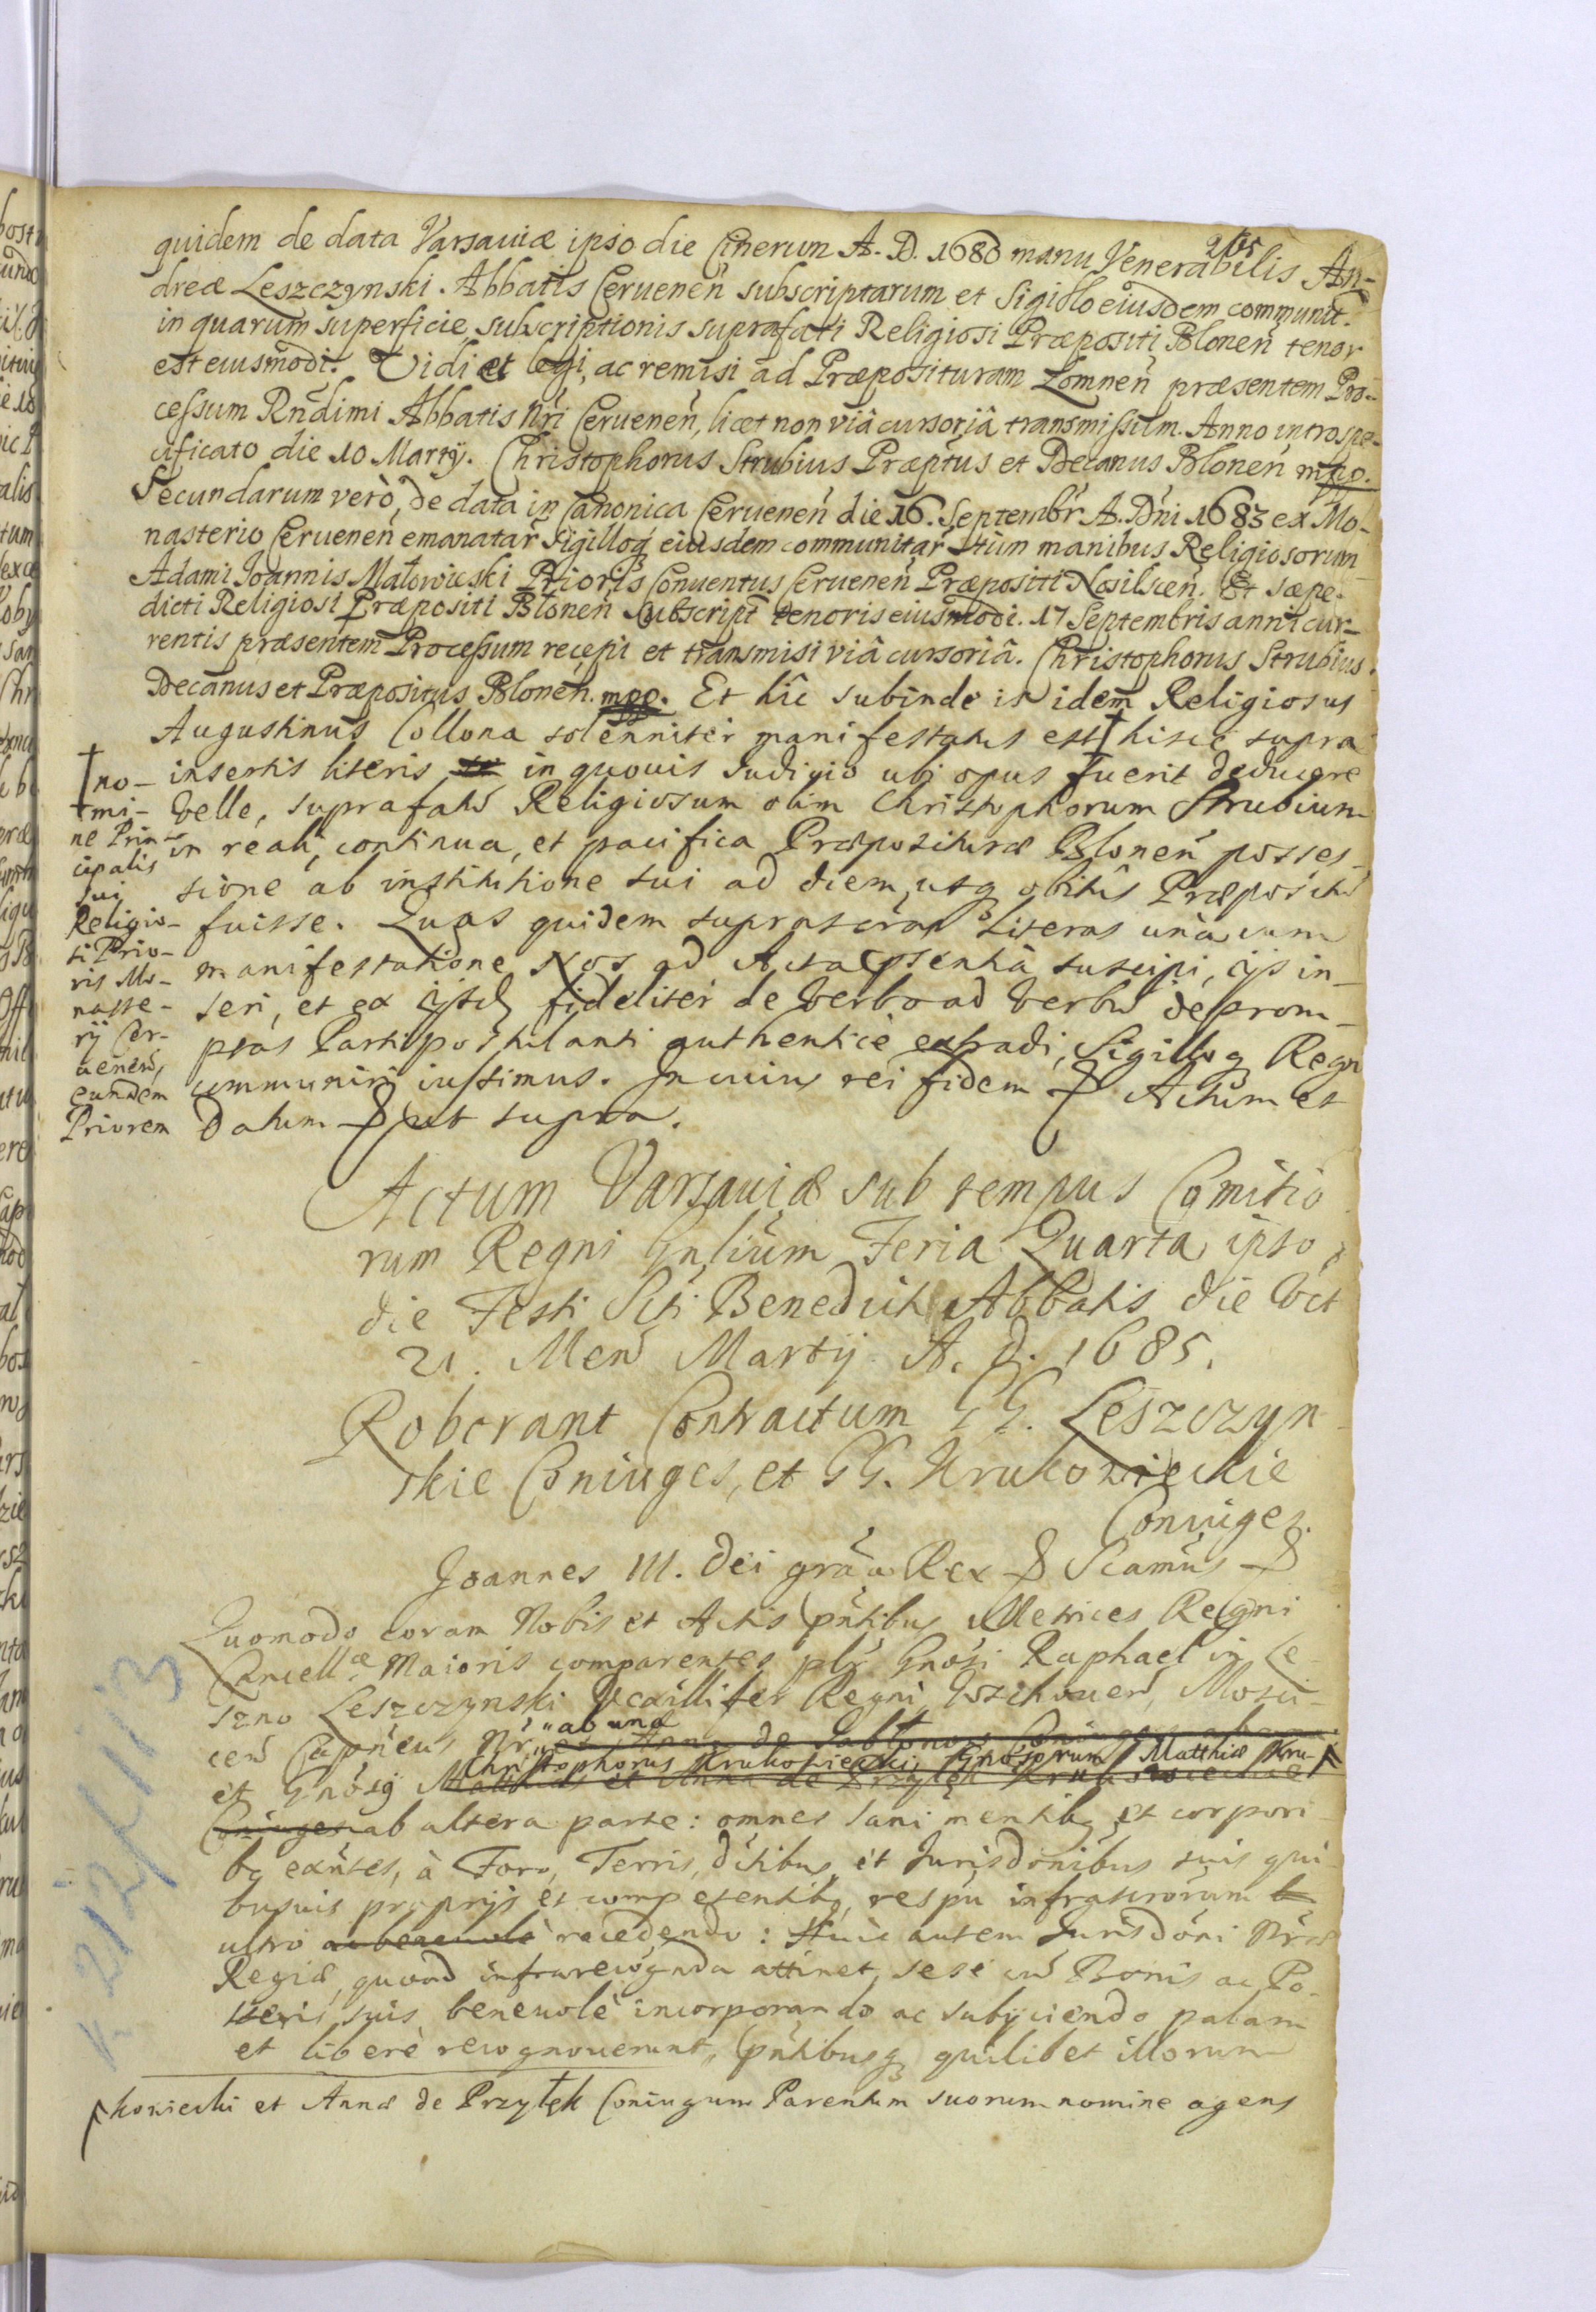 265
quidem de data Varsauiæ ipso die Cinerum A. D. 1680 manu Venerabilis An-
dreæ Leszczynski. Abbatis Ceruenen̄ subscriptarum et Sigillo eiusdem communit.
in quarum superficie subscriptionis suprafati Religiosi Præpositi Blonen̄ tenor
est eiusmodi. Vidi et legi, ac remisi ad Præposituram Lomnen̄ præsentem Pro-
cessum Rn̄dimi Abbatis nr̄i Ceruenen̄, licet non viâ cursoriâ transmissum. Anno introspe-
cificato die 10 Martÿ. Christophorus Strubius Præptus et Decanus Blonen̄ mpp.
Secundarum verò, de data in Canonica Ceruenen̄ die 16. Septembr̄ A. Dn̄i 1683 ex Mo-
nasterio Ceruenen̄ emanatar̄ Sigilloq̨ eiusdem communitar̄ tum manibus Religiosorum
Adami Joannis Małowieski Prioris Conuentus Ceruenen̄ Præpositi Nosilscen̄. Et sæpe-
dicti Religiosi Præpositi Blonen̄ Subscript̄ tenoris eiusmodi. 17 Septembris anni cur-
rentis præsentem Processum recepi et transmisi viâ cursoriâ. Christophorus Strubius
Decanus et Præpositus Blonen̄. mpp. Et hîc subinde is idem̄ Religiosus
Augustinus Collona solenniter manifestatus est † hisce supra
insertis literis in quouis Judicio ubi opus fuerit deducere
velle, suprafatū Religiosum olim Christophorum Strubium
in reali, continua, et pacifica Præposituræ Blonen̄ posses-
sione ab institutione sui ad diem usq̨ obitûs Præpositū
fuisse. Quas quidem suprascrap̄ Literas unà cum
manifestatione Nos ad Acta p̄sentia suscipi, ijs in-
seri, et ex ijsd̄ fideliter de verbo ad verbū deprom-
ptas Parti postulanti authenticè extradi, Sigilloq̨ Regni
communiri iussimus. In cuius rei fidem & Actum et
Datum & ut supra.
† no-
mi-
ne Prin-
cipalis
sui
Religio-
si Prio-
ris Mo-
naste-
rij Cer-
uenen̄,
eundem
Priorem
Actum Varsauiæ sub tempus Comitio
rum Regni Gn̄lium Feria Quarta ipso
die Festi Sc̄ti Benedicti Abbatis die vit
21. Men̄ Martÿ A. D. 1685.
Roborant Contractum GG. Leszczyn-
skie Coniuges, et GG. Krukowieckie
Coniuges.
Joannes III. Dei grā̄a Rex & Sc̄amus &
Quomodo coram Nobis et Actis p̄n̄tibus Metrices Regni
Cancellæ Maioris comparentes pl̄r Gn̄osi Raphael in Le-
szno Leszczynski Vexillifer Regni Wschouen̄, Mosci-
cen̄ Capn̄eus Nr̄ ab una et Anna de Jabłonow Coniuges ab una
Christophorus Krukowiecki, Gn̄osorum Matthiæ Kru- †
et Gn̄osq̨ Matthias et Anna de Przyłęk Krukowieckie
Coniuges ab altera parte: omnes sani mentibq̨ et corpori-
bq̨ exn̄tes, à Foro, Terris, d̄itibus et Jurisdōnibus suis qui-
busuis proprijs et competentibq̨, respū infrascr̄orum
ultro ac beneuolè recedendo: Huic autem Jurisdōni Nr̄æ
Regiæ, quoad infrarecogn̄da attinet, sese cū Bonis ac Po-
steris suis beneuolè incorporando ac subijciendo palam
et liberè recognouerunt, p̄n̄tibusq̨ quilibet illorum
† kowiecki et Annæ de Przyłęk Coniugum Parentum suorum nomine agens